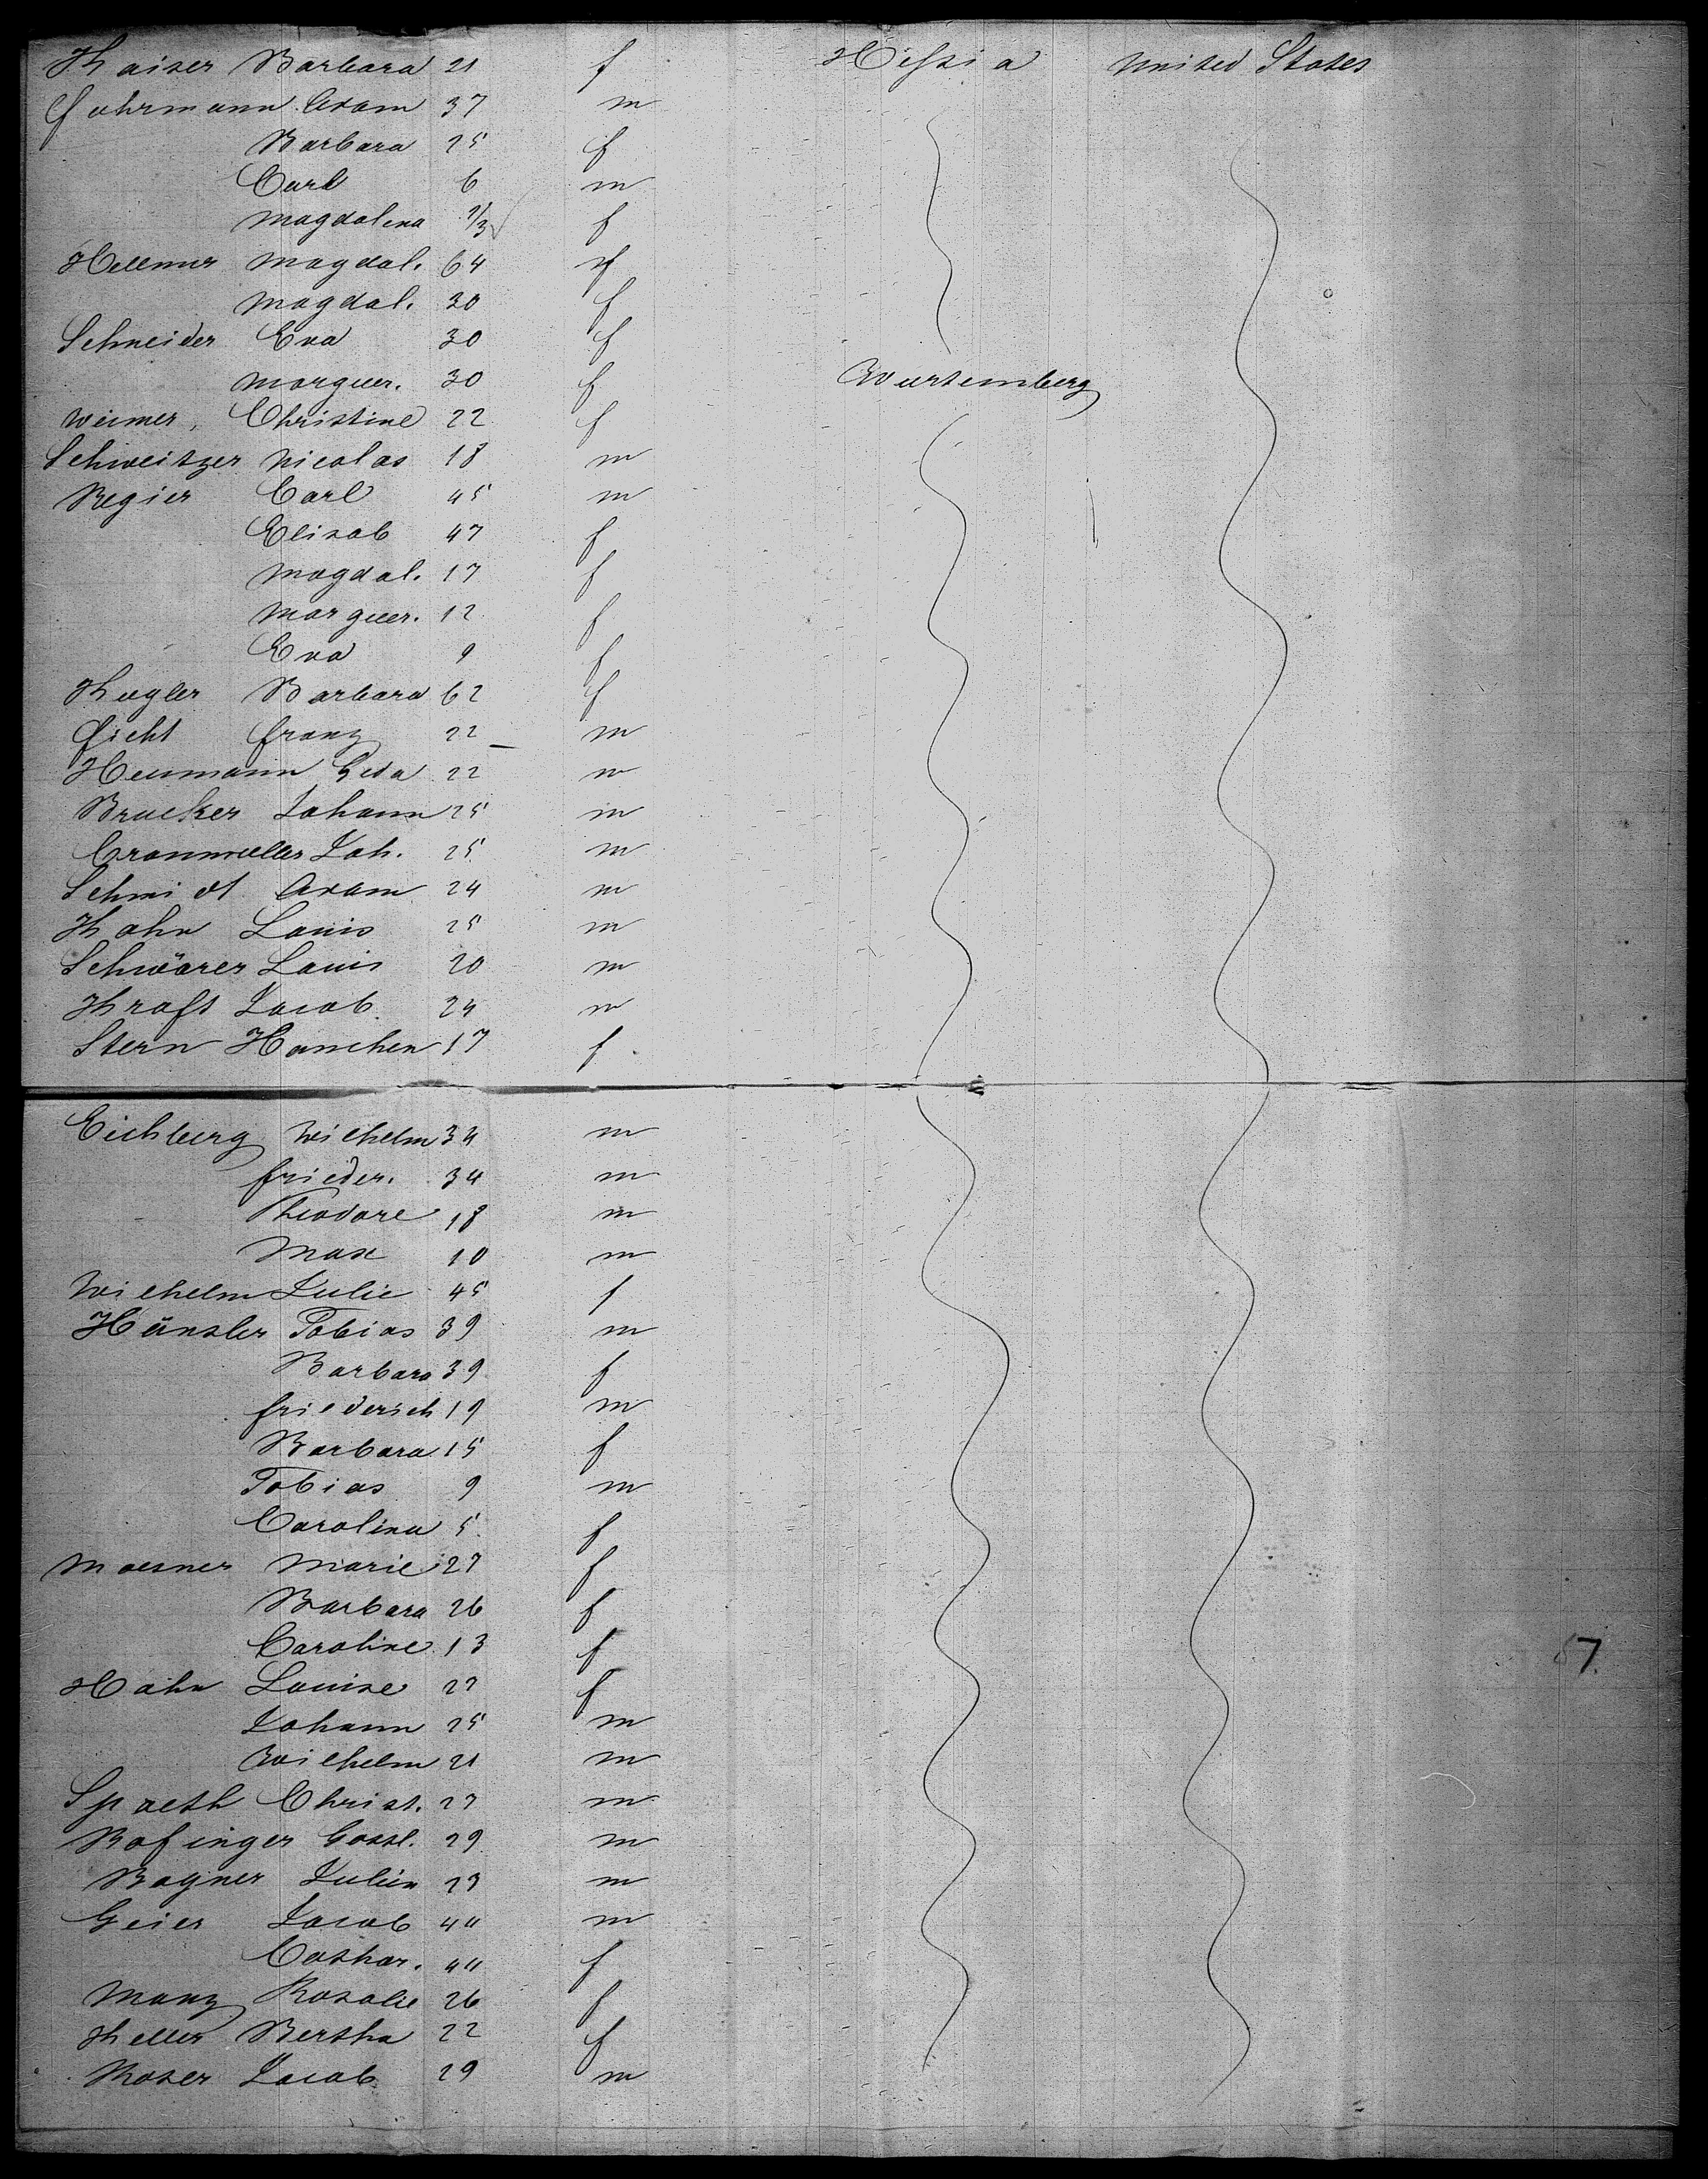 Kaiser Barbara 21 f Hessia United States
Fuhrmann Adam 37 m
Barbara 25 f
Carl 6 m
Magdalena f
Hellmer Magdal. 64 f
Magdal. 30 f
Schneider Eva 30 f
Marguer. 30 f Wurtemberg
Weimer, Christine 22 f
Schweitzer Nicolas 18 m
Regier Carl 45 m
Elisab 47 f
Magdal. 17 f
Marguer. 12 f
Eva 9 f
Kugler Barbara 62 f
Ficht Franz 22 m
Heumann 22 m
Brucker Johann 25 m
Cronmuller Joh. 25 m
Schmidt Adam 24 m
Kahn Louis 25 m
Schwärer Louis 20 m
Kraft Jacob 24 m
Stern Hanchen 17 f
Eichberg Wilhelm 34 m
Frieder. 34 m
Theodore 18 m
Max 10 m
Wilhelm Julie 45 f
Hänsler Tobias 39 m
Barbara 39 f
Friederich 19 m
Barbara 15 f
Tobias 9 m
Carolina 5 f
Maesner Marie 27 f
Barbara 26 f
Caroline 13 f
57
Hahn Louise 22 f
Johann 25 m
Wilhelm 21 m
Spaeth Christ. 27 m
Bofinger Gottl. 29 m
Bagner Julien 23 m
Geier Jacob 44 m
Cathar. 44 f
Manz Rosalie 26 f
Keller Bertha 22 f
Moser Jacob 29 m